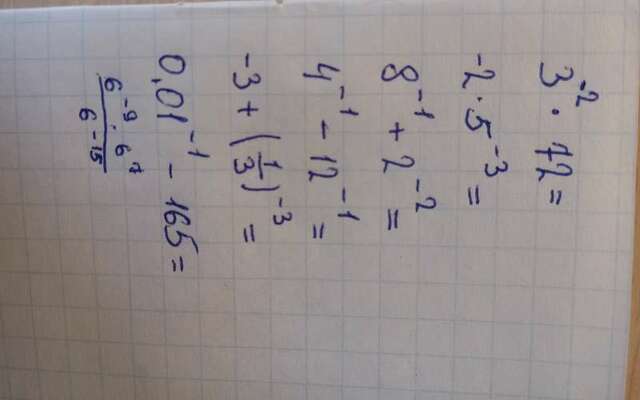 3⁻² · 72 =
-2 · 5⁻³ =
8⁻¹ + 2⁻² =
4⁻¹ - 12⁻¹ =
-3 + (1/3)⁻³ =
0,01⁻¹ - 165 =
6⁻⁹ · 6⁷ / 6⁻¹⁵